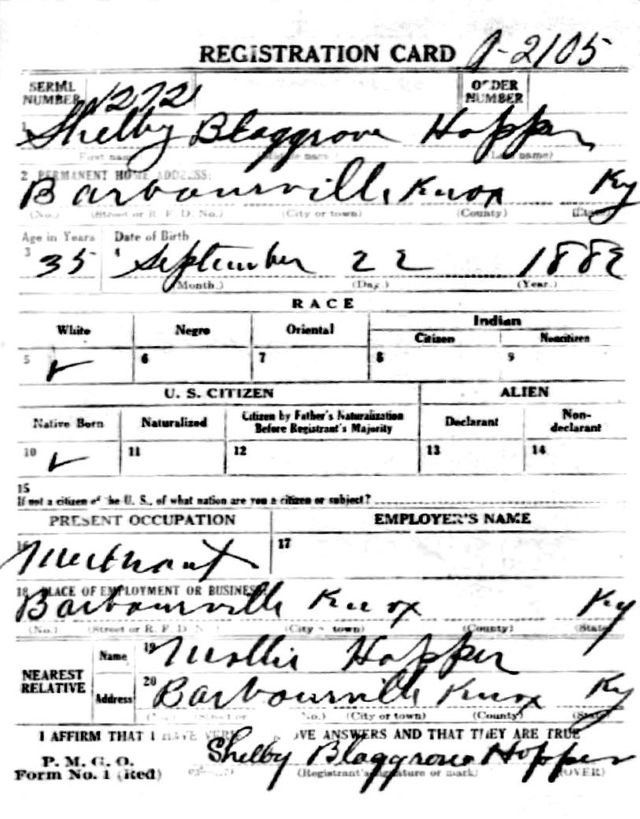 REGISTRATION CARD A-2105
SERIAL NUMBER 2721 ORDER NUMBER
1 Shelby Blaggrove Hopper
First name Middle name (Last name)
2 PERMANENT HOME ADDRESS:
Barbourville Knox Ky
(No.) (Street or R. F. D. No.) (City or town) (County) (State)
Age in Years Date of Birth
3 35 4 September 22 188
(Month.) (Day.) (Year.)
RACE
White Negro Oriental Indian
Citizen Noncitizen
5 ✓ 6 7 8 9
U. S. CITIZEN ALIEN
Native Born Naturalized Citizen by Father's Naturalization Before Registrant's Majority Declarant Non-declarant
10 ✓ 11 12 13 14
15
If not a citizen of the U. S., of what nation are you a citizen or subject?
PRESENT OCCUPATION EMPLOYER'S NAME
16 Merchant 17
18 PLACE OF EMPLOYMENT OR BUSINESS:
Barbourville Knox Ky
(No.) (Street or R. F. D. No.) (City or town) (County) (State)
NEAREST RELATIVE Name 19 Mollie Hopper
Address 20 Barbourville Knox Ky
(No.) (City or town) (County) (State)
I AFFIRM THAT I HAVE VERIFIED ABOVE ANSWERS AND THAT THEY ARE TRUE
P. M. G. O.
Form No. 1 (Red) Shelby Blaggrove Hopper
(Registrant's signature or mark) (OVER)